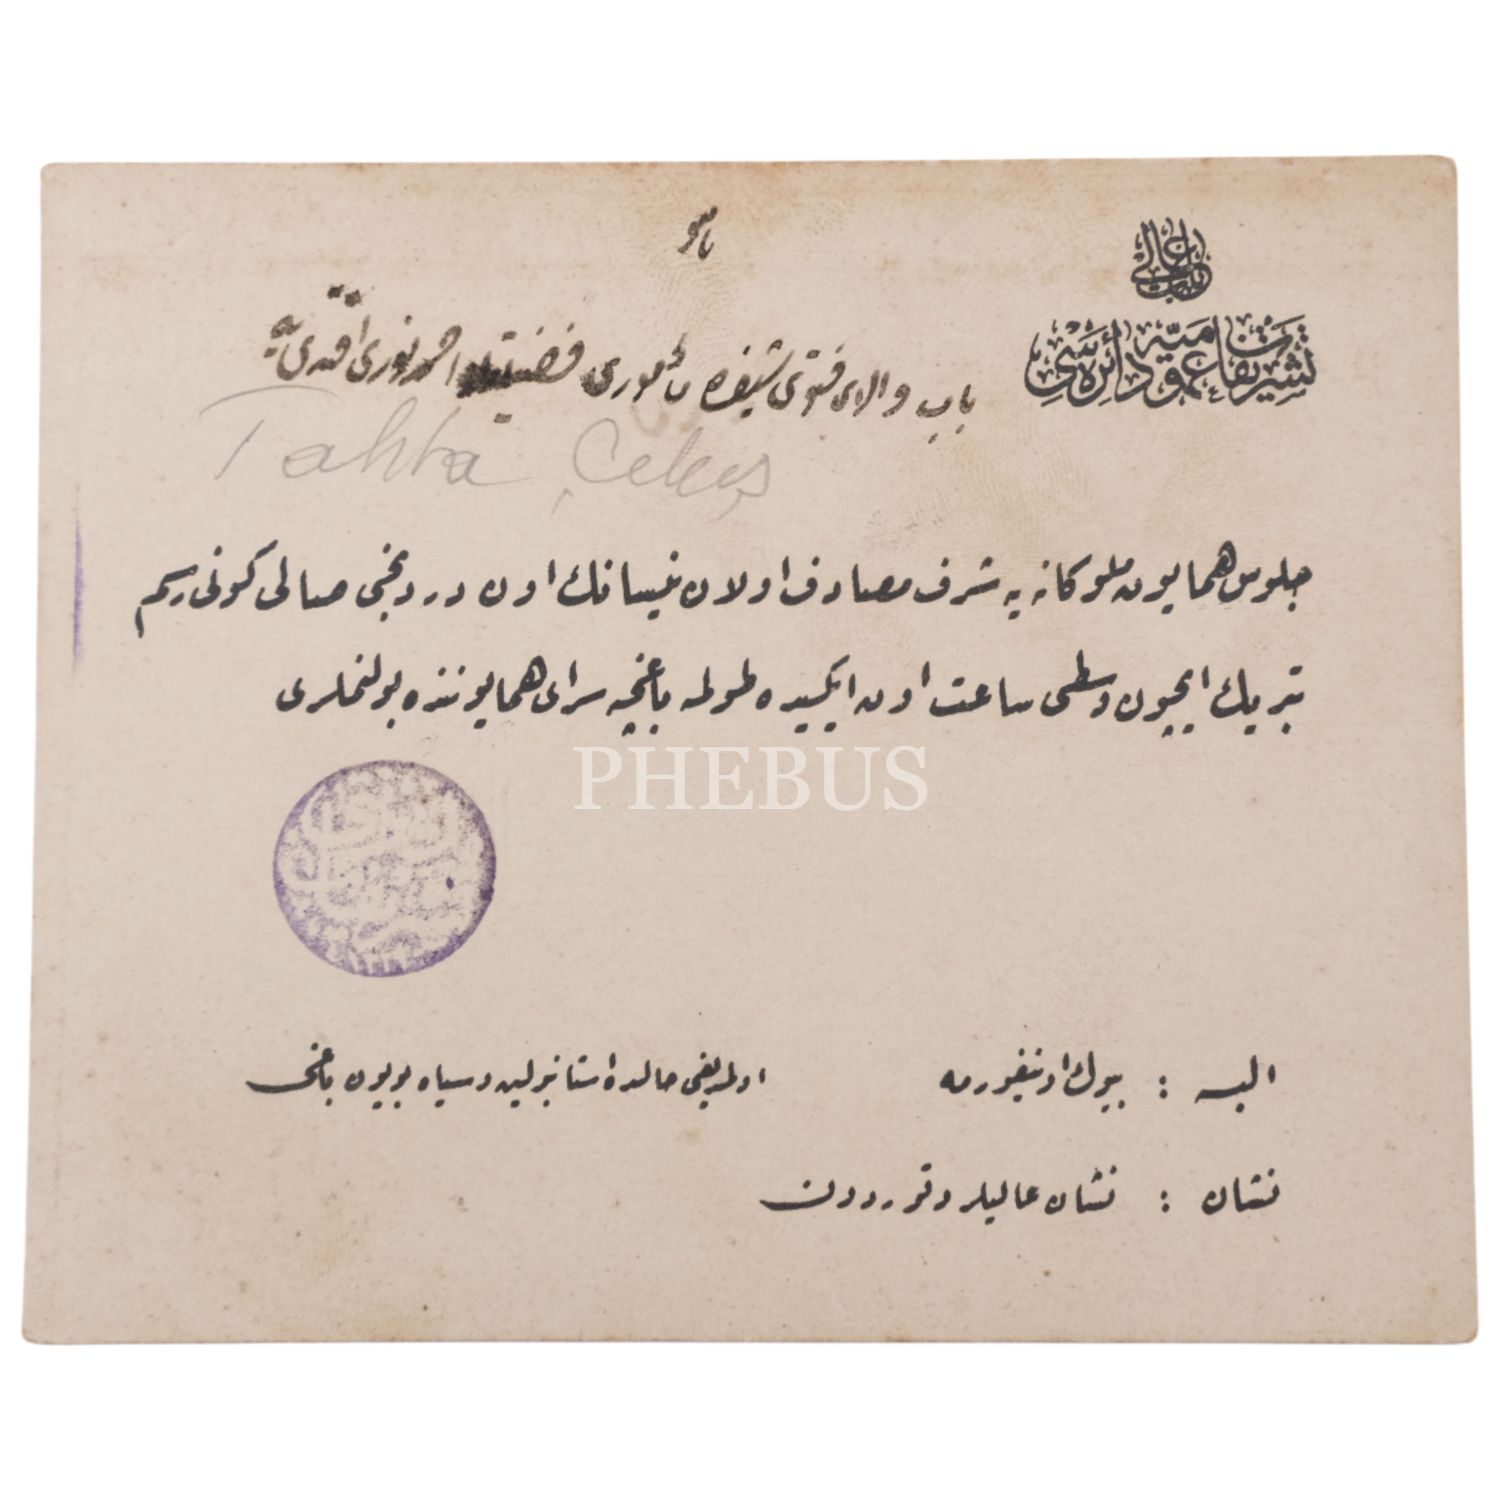 باب عالی
تشریفات عمومیه دائره سی
باب والای فتوی شیفره مأموری فضیلتلو احمد نوری افندی یه
Tahta Çekiş
جلوس همایون ملوکانه یه شرف مصادف اولان نیسانك اون دردنجی صالی کونی رسم
تبریك ایچون وسطی ساعت اون ایکیده طولمه باغچه سرای همایوننده بولنملری
PHEBUS
البسه : بیوك اونیفورمه اولمدیغی حالده استانبولین وسیاه بویون باغی
نشان : نشان عالیلر وقوردون